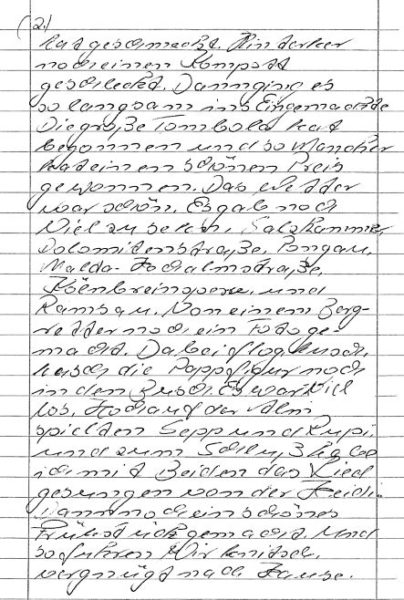 (2.)
hat geschmeckt. Hinterher
noch einen Kompott
geschleckt. Dann ging es
so langsam ins Eingemachte
Die große Tombola hat
begonnen und so Mancher
hat einen schönen Preis
gewonnen. Das Wetter
war schön. Es gab noch
Viel zu sehen, Salzkammer,
Dolomitenstraße, Pongau,
Malta-Hochalmstraße,
und
Ramsau. Von einem Berg-
retter noch ein Foto ge-
macht. Dabei flog
die Pappfigur noch
in den Busch. Es war Viel
los. Hoch auf der Alm
spielten Sepp und Rupi,
und zum Schluß habe
ich mit Beiden das Lied
gesungen von der Heidi.
Dann noch ein schönes
Frühstück gemacht. Und
so fuhren Wir
vergnügt nach Hause.